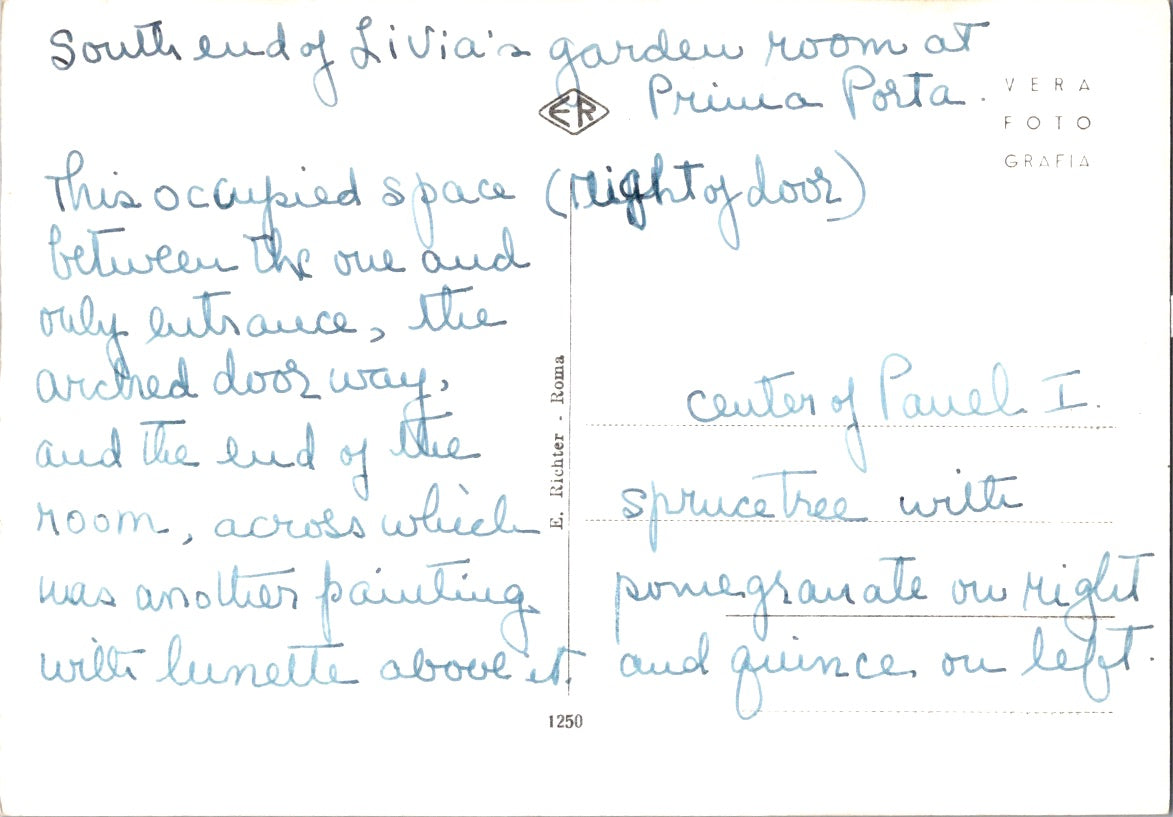 South end of Livia's garden room at
Prima Porta.
VERA
FOTO
GRAFIA
ER
This occupied space (right of door)
between the one and
only entrance, the
arched door way,
and the end of the
room, across which
was another painting
with lunette above it.
E. Richter - Roma
center of Panel I.
spruce tree with
pomegranate on right
and quince on left.
1250